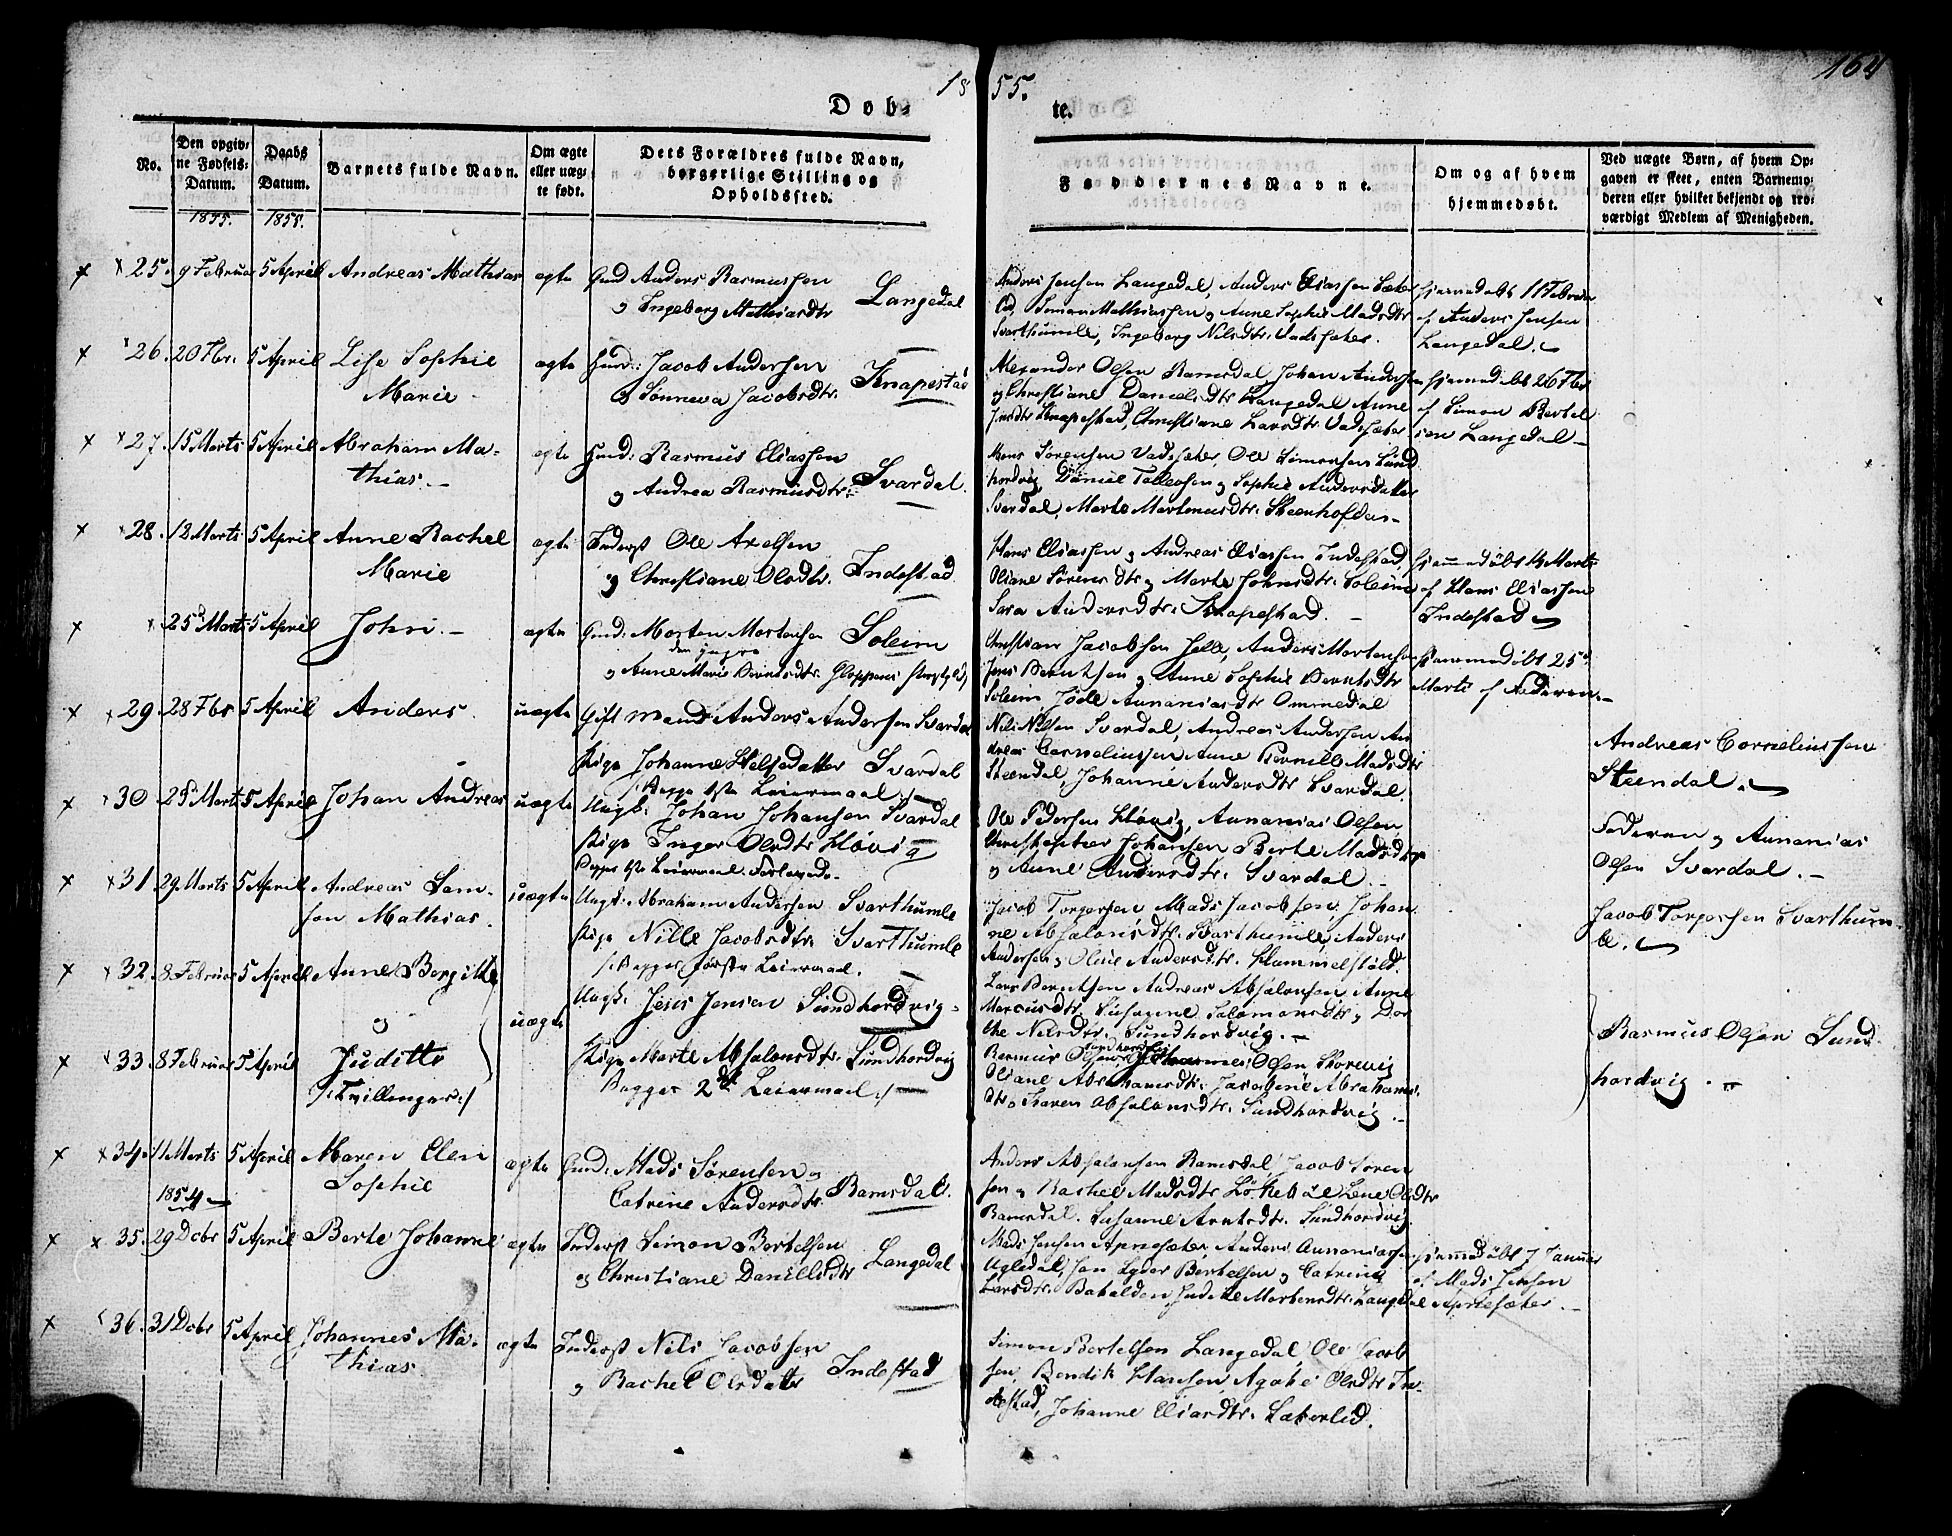 164
1855.
Døbte.
No.
Den opgivne Fødsels-Datum.
Daabs Datum.
Barnets fulde Navn.
Om ægte eller uægte født.
Dets Forældres fulde Navn, borgerlige Stilling og Opholdssted.
Faddernes Navne.
Om og af hvem hjemmedøbt.
Ved uægte Børn, af hvem Opgaven er skeet, enten Barnemoderen eller hvilket bekjendt og troværdigt Medlem af Menigheden.
1855. 1855.
25. 9 Februar 5 April Andreas Mathias ægte Gmd Anders Rasmussen
og Ingeborg Mathiasdtr Langedal
Anders Jensen Langedal, Anders Eliassen
Simon Mathiassen og Anne Sophie Madsdtr
Svarthumle, Ingeborg Nilsdtr Vadsæter.
hjemmedøbt 11 Februar
af Anders Jensen
Langedal.
26. 20 Fbr. 5 April Lise Sophie
Marie ægte Gmd: Jacob Andersen
og Sønneva Jacobsdtr. Knapestad
Alexander Olsen Ramsdal, Johan Andersen
og Christiane Danielsdtr Langedal Anne
Knapestad, Christiane Larsdtr Vadsæter
hjemmedøbt 26 Fbr
af Simon Bertel
sen Langedal
27. 15 Marts 5 April Abraham Ma-
thias. ægte Gmd: Rasmus Eliassen
og Andrea Rasmusdtr: Svardal.
Mons Sørensen Vadsæter, Ole Simonsen Sund
hordvig, Daniel Tollevsen og Sophie Andersdatter
Svardal, Marte Martinusdtr: Steenhofden
28. 12 Marts 5 April Anne Rachel
Marie ægte Inderst Ole Axelsen
og Christiane Olsdtr. Indestad
Hans Eliassen og Andreas Eliassen Indestad,
Oliane Sørensdtr og Marte Johnsdtr. Soleim
Sara Andersdtr: Knapestad.
hjemmedøbt Marts
af Hans Eliassen
Indestad
25d Marts 5 April John. ægte Gmd: Morten Mortensen Soleim
den yngre
og Anne Marie Berntsdtr. Gloppens
Christian Jacobsen Jelle, Anders Mortensen
Jens Berntsen og Anne Sophie Berntsdtr
Soleim, Jøde Annaniasdtr Ommedal
hjemmedøbt 25d
Marts af Faderen.
29. 28 Fbr 5 April Anders. uægte Gift Mand Anders Andersen Svardal
Pige Johanne Svardal
/:Begges 1ste Leiermaal:/
Nils Nilsen Svardal, Andreas Andersen An
dreas Corneliussen Anne Pernille Madsdtr
Steendal, Johanne Andersdtr Svardal.
Andreas Corneliussen
Steendal.
30. 25 Marts 5 April Johan Andreas uægte Ungk: Johan Johansen Svardal
Pige Inger Olsdtr Høvig
Begges 1ste Leiermaal. Forlovede.
Ole Pedersen Høvig, Annanias Olsen
Christopher Johansen Berte Madsdtr
og Anne Andersdtr. Svardal.
Faderen og Annanias
Olsen Svardal.
31. 29 Marts 5 April Andreas Sam-
son Mathias. uægte Ungk: Abraham Andersen Svarthumle
Pige Nille Jacobsdtr. Svarthumle
/:Begges første Leiermaal.
Jacob Torgersen Mads Jacobsen, Johan
ne Absalonsdtr. Svarthumle, Anders
Andersen og Oline Andersdtr. Hammelstøld.
Jacob Torgersen Svarthum-
le.
32. 8 Februar 5 April Anne Bergitte
og
33. 8 Februar 5 April Juditte
/:Tvillinger:/
uægte
Ungk. Jens Jensen Sundhordvig
Pige Marte Absalonsdtr. Sundhordvig
Begges 2det Leiermaal:/
Lars Berntsen Andreas Absalonsen, Anne
Marcusdtr. Susanne Salomonsdtr og Dor
the Nilsdtr. Sundhordvig.
Rasmus Olsen Sundhordvig Johannes Olsen Skorevig
Oliane Abrahamsdtr. Jacobine Abrahams
dtr. Karen Absalonsdtr. Sundhordvig.
Rasmus Olsen Sund-
hordvig.
34. 11 Marts 5 April Maren Elen
Sophie ægte Gmd: Mads Sørensen og
Catrine Andersdtr Ramsdal.
Anders Absalonsen Ramsdal, Jacob Søren
sen og Rachel Madsdtr Løkebøe Lene Olsdtr
Ramsdal. Susanne Arntsdtr. Sundhordvig.
1854
35. 29 Decbr 5 April Berte Johanne ægte Inderst Simon Bertelsen
og Christiane Danielsdtr Langedal
Mads Jensen Apriesæter, Anders Annaniassen
Ugledal, Jan Lyder Bertelsen og Catrine
Larsdtr. Bakalden Juditte Mortensdtr. Langedal
hjemmedøbt 7 Januar
af Mads Jensen
Apriesæter.
36. 31 Decbr 5 April Johannes Ma-
thias. ægte Inderst Nils Jacobsen
og Rachel Olsdatter Indestad
Simon Bertelsen Langedal, Ole Jacob
sen, Bendik Hansen, Agathe Olsdtr In-
destad, Johanne Eliasdtr. Sæterlid.